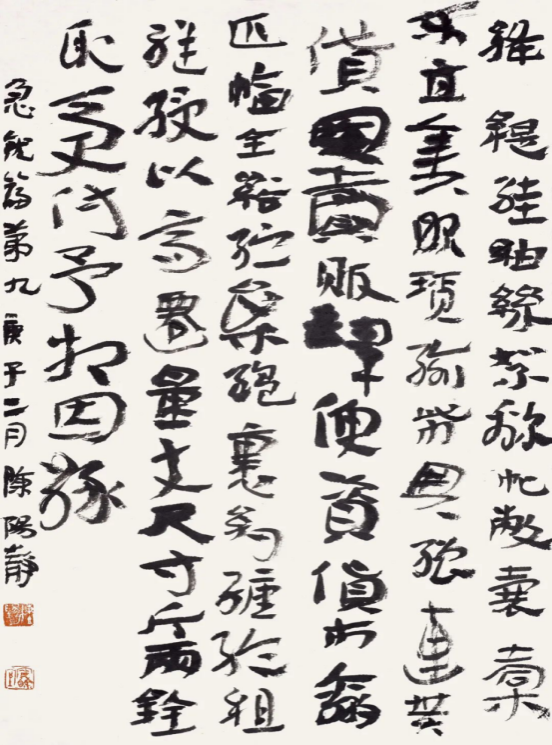 絳緹絓紬絲絮綿敝囊橐
不直服瑣緰與繒連貰
貸賣買販肆便資貨市贏
匹幅全綌紵枲縕裹約纏綸組
縌綬以高遷量丈尺寸斤兩銓
取受付予相因緣
急就篇第九 庚子二月 陳陽靜